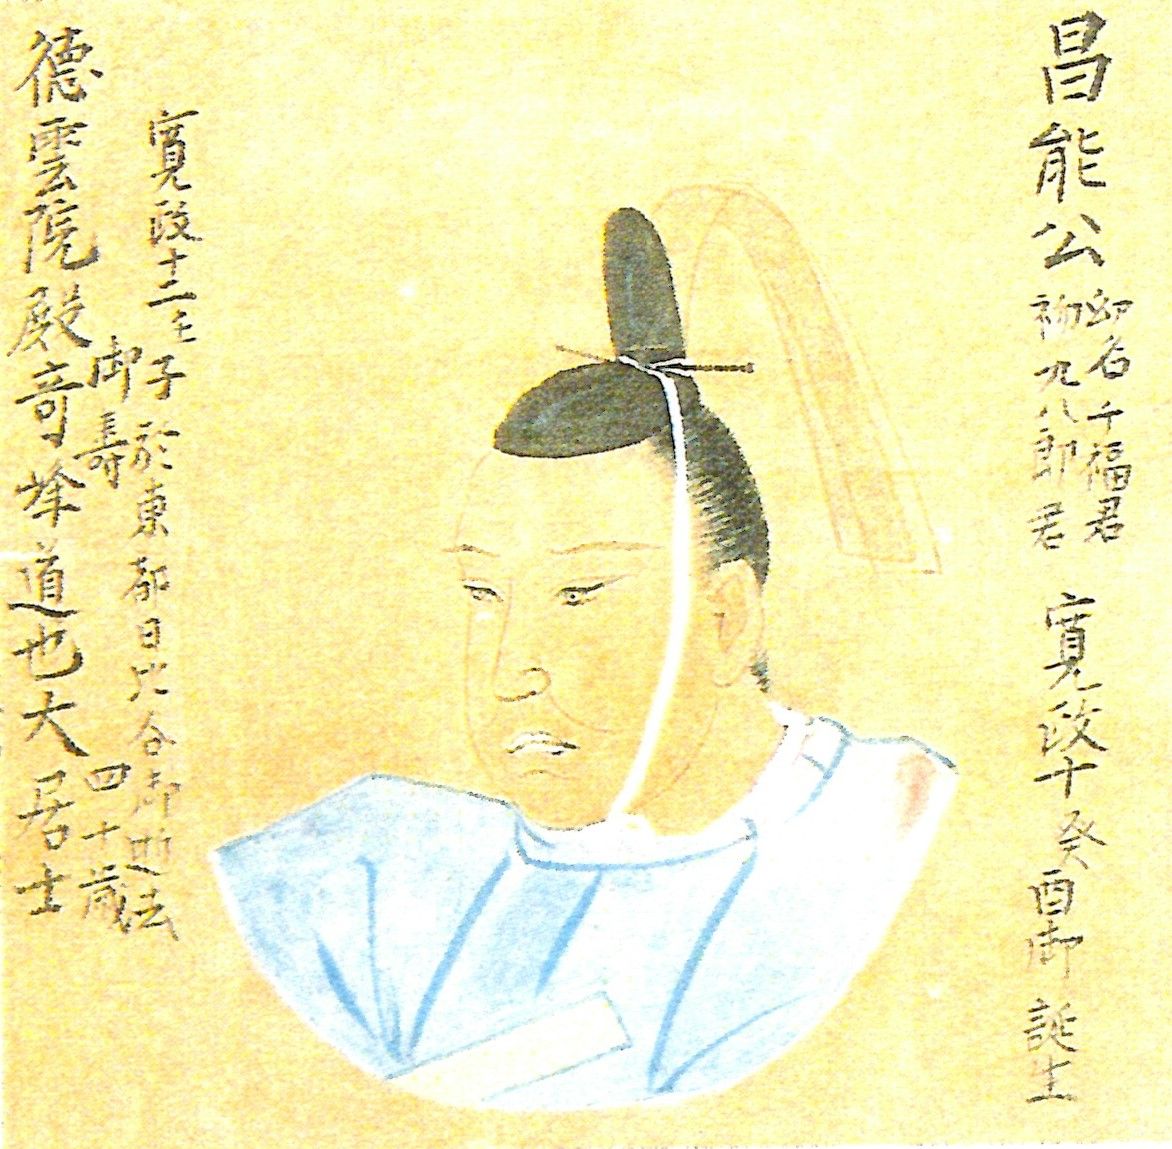 昌能公
幼名千福君
初九八郎君
寛政十癸酉御誕生
寛政十二壬子於東都日比谷御
御壽四十歳
德雲院殿奇峰道也大居士